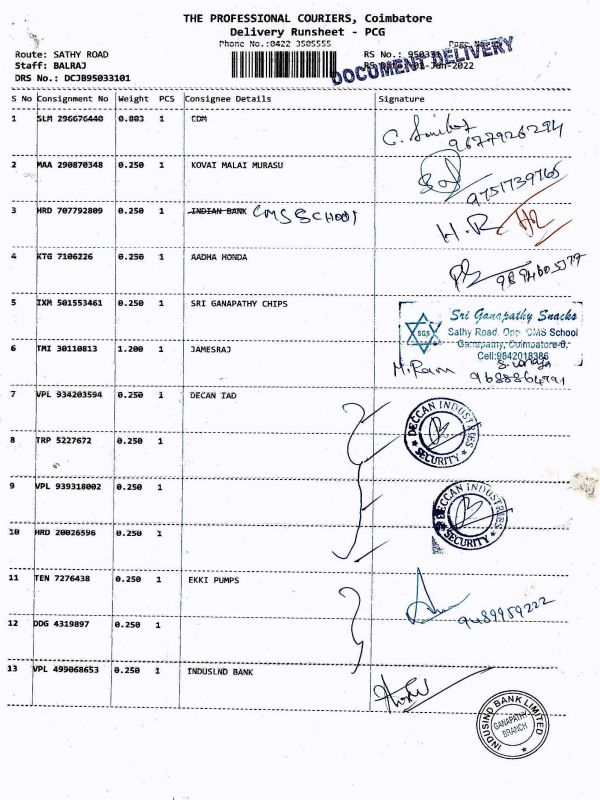 THE PROFESSIONAL COURIERS, Coimbatore
Delivery Runsheet - PCG
Phone No.:0422 3505555
Route: SATHY ROAD
Staff: BALRAJ
DRS No.: DCJB95033101
RS No.:
01-Jun-2022
DOCUMENT DELIVERY
S No Consignment No Weight PCS Consignee Details Signature
1 SLM 296676440 0.803 1 CDM
9677926294
2 MAA 290870348 0.250 1 KOVAI MALAI MURASU
9751739765
3 HRD 707792809 0.250 1 INDIAN BANK CMS SCHOOL
H.R
4 KTG 7106226 0.250 1 AADHA HONDA
5 IXM 501553461 0.250 1 SRI GANAPATHY CHIPS
SGS
Sri Ganapathy Snacks
Sathy Road, Opp. CMS School
Ganapathy, Coimbatore-6.
Cell:9842018386
6 TMI 30110813 1.200 1 JAMESRAJ
M.Ram
7 VPL 934203594 0.250 1 DECAN IAD
DECCAN INDUSTRIES
SECURITY
8 TRP 5227672 0.250 1
9 VPL 939318002 0.250 1
DECCAN INDUSTRIES
SECURITY
10 HRD 20026596 0.250 1
11 TEN 7276438 0.250 1 EKKI PUMPS
9489959222
12 DDG 4319897 0.250 1
13 VPL 499068653 0.250 1 INDUSLND BANK
INDUSIND BANK LIMITED
GANAPATHY
BRANCH